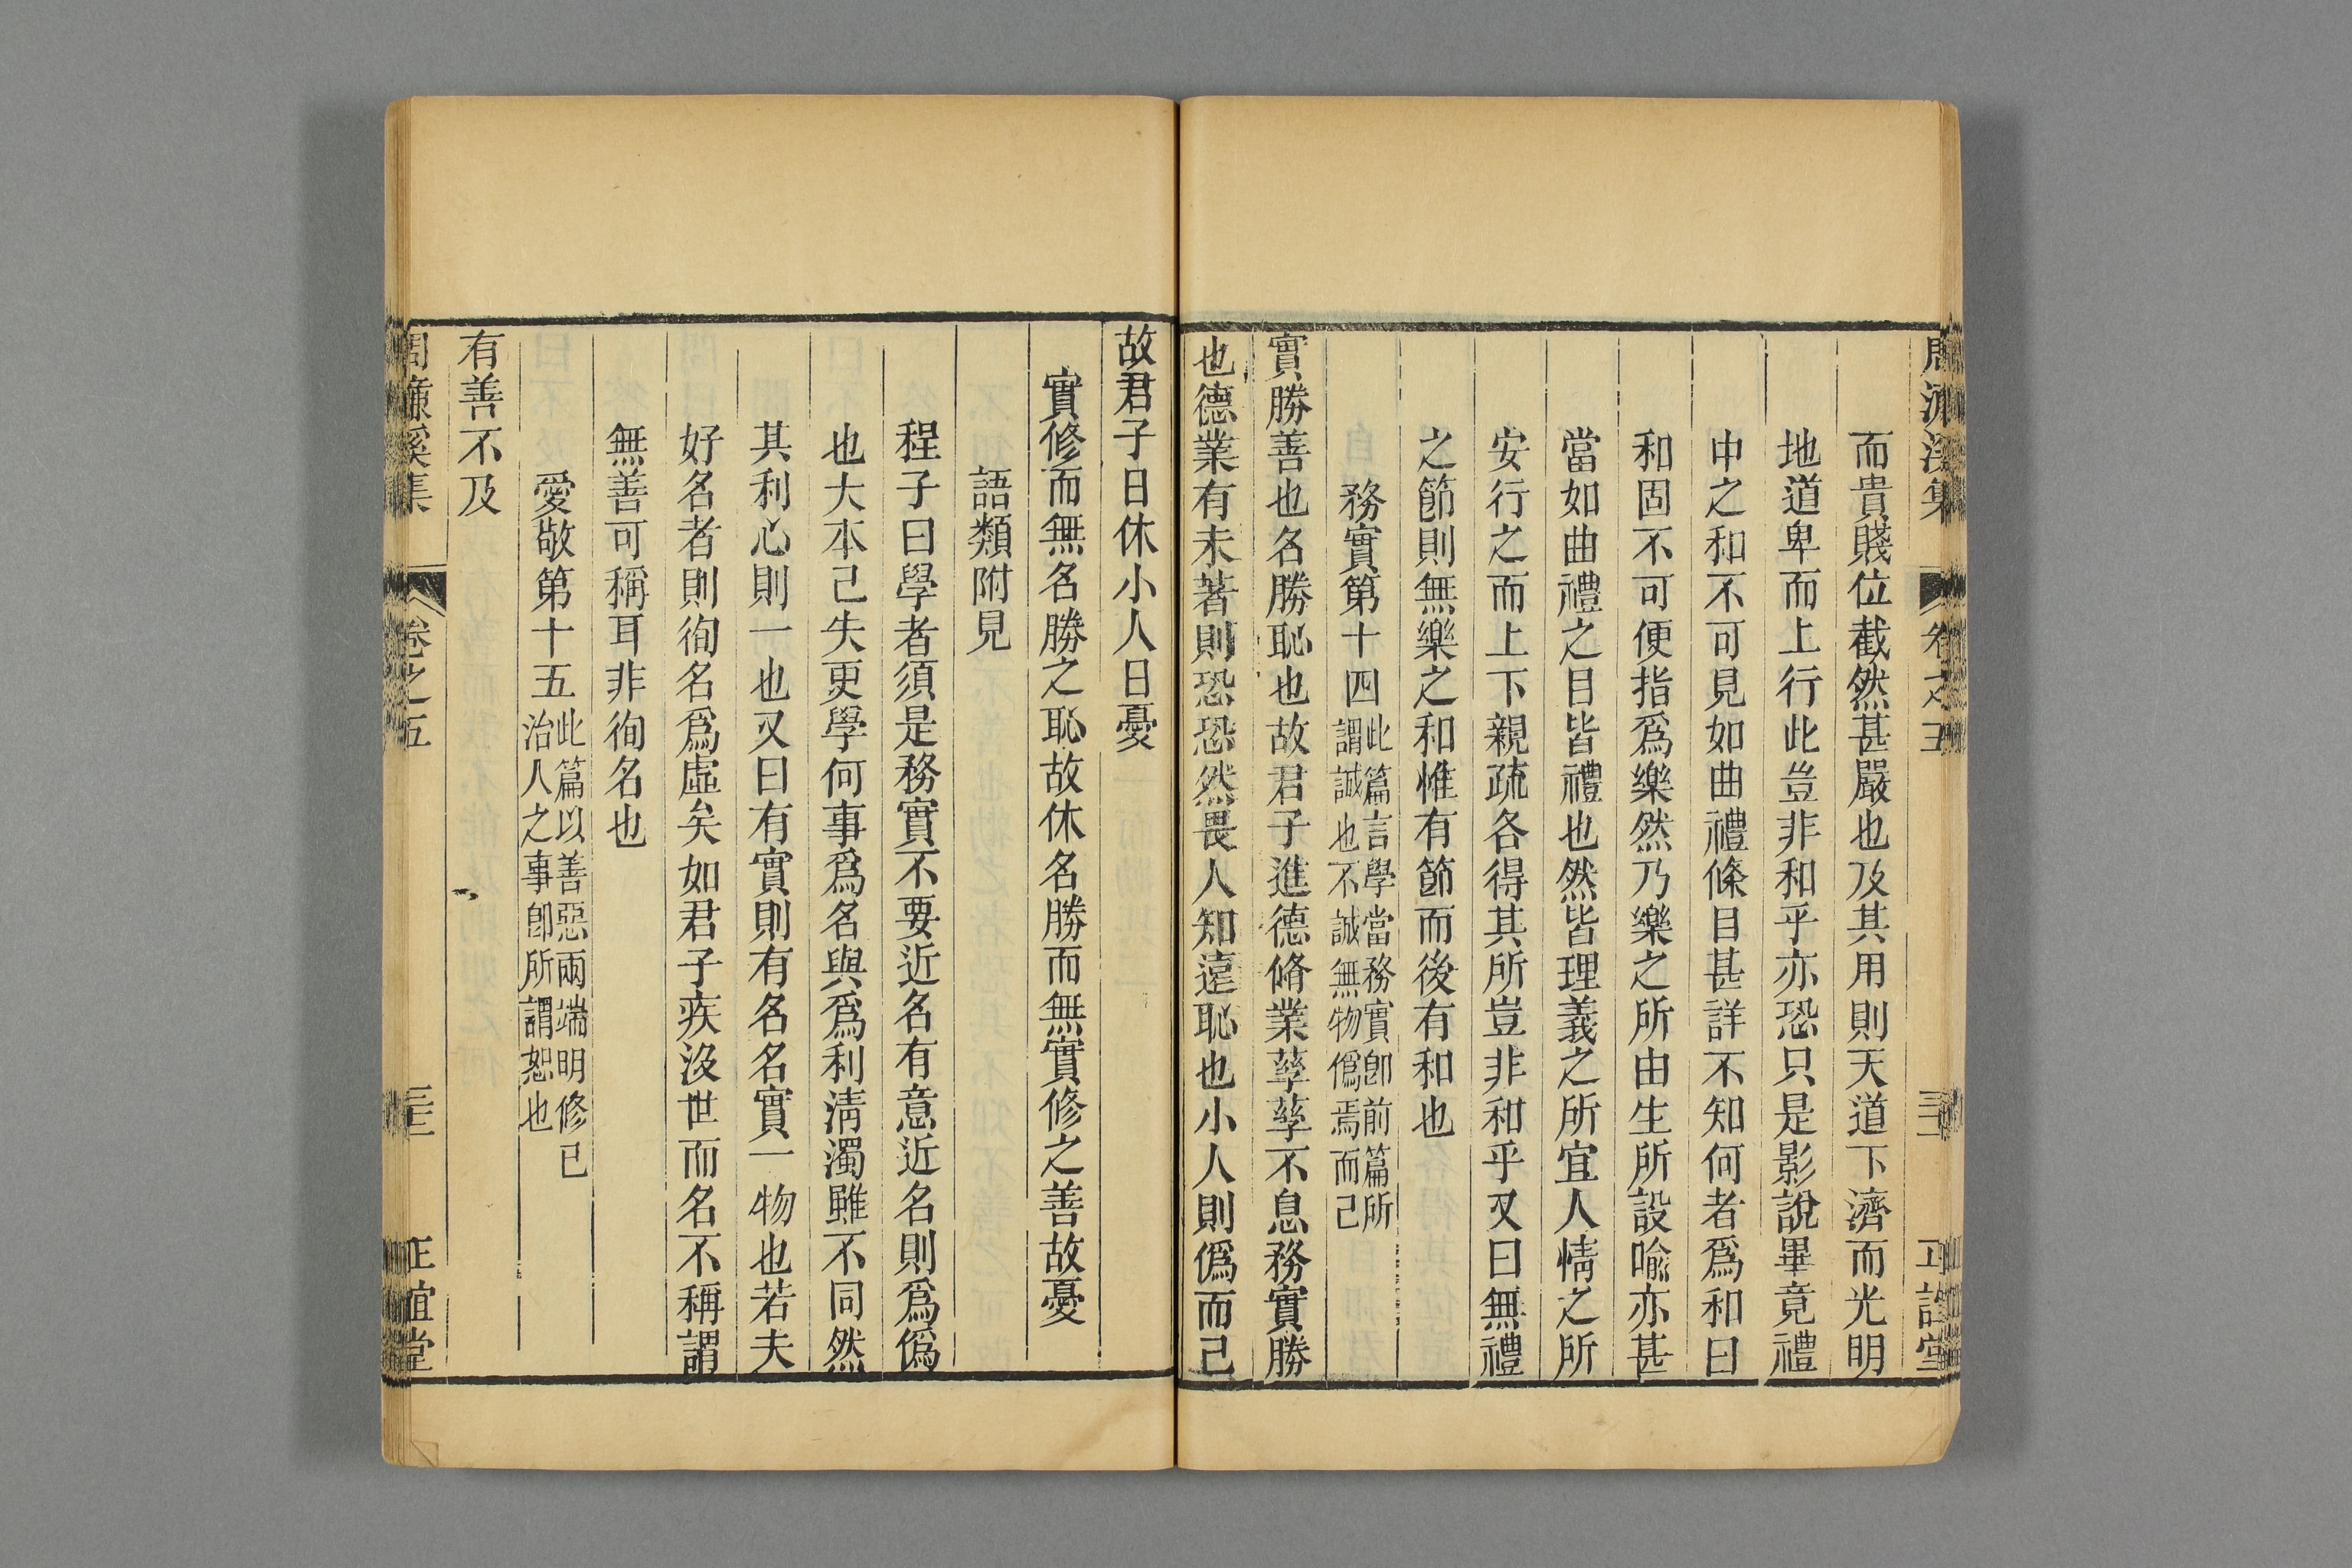 而貴賤位截然甚嚴也及其用則天道下濟而光明
地道卑而上行此豈非和乎亦恐只是影說畢竟禮
中之和不可見如曲禮條目甚詳不知何者爲和曰
和固不可便指爲樂然乃樂之所由生所設喻亦甚
當如曲禮之目皆禮也然皆理義之所宜人情之所
安行之而上下親疏各得其所豈非和乎又曰無禮
之節則無樂之和惟有節而後有和也
務實第十四
此篇言學當務實卽前篇所
謂誠也不誠無物僞焉而已
實勝善也名勝恥也故君子進德脩業孳孳不息務實勝
也德業有未著則恐恐然畏人知遠恥也小人則僞而已
故君子日休小人日憂
實修而無名勝之恥故休名勝而無實修之善故憂
語類附見
程子曰學者須是務實不要近名有意近名則爲僞
也大本已失更學何事爲名與爲利淸濁雖不同然
其利心則一也又曰有實則有名名實一物也若夫
好名者則徇名爲虛矣如君子疾沒世而名不稱謂
無善可稱耳非徇名也
愛敬第十五
此篇以善惡兩端明修已
治人之事卽所謂恕也
有善不及
周濓溪集
卷之五
正誼堂